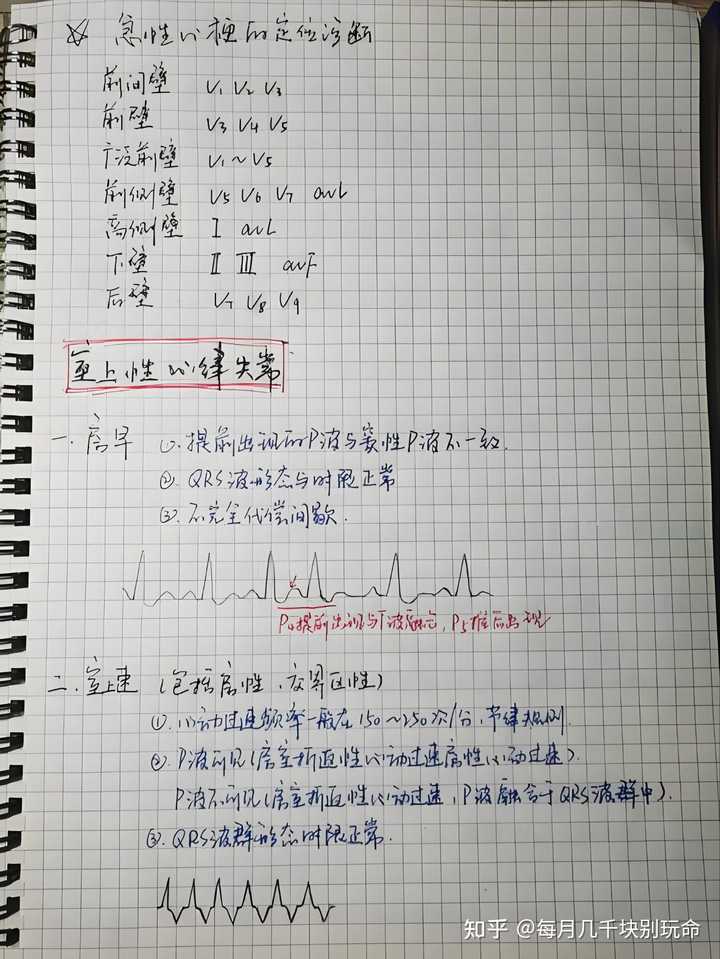 ☆ 急性心梗的定位诊断
前间壁 V₁ V₂ V₃
前壁 V₃ V₄ V₅
广泛前壁 V₁~V₅
前侧壁 V₅ V₆ V₇ avL
高侧壁 I avL
下壁 II III avF
后壁 V₇ V₈ V₉
室上性心律失常
一. 房早 ①. 提前出现的P波与窦性P波不一致.
②. QRS波形态与时限正常
③. 不完全代偿间歇.
P₄提前出现与T波融合, P₅推后出现
二. 室上速 (包括房性、交界区性)
①. 心动过速频率一般在150~250次/分, 节律规则.
②. P波可见(房室折返性心动过速房性心动过速).
P波不可见(房室折返性心动过速, P波融合于QRS波群中).
③. QRS波群形态时限正常.
知乎 @每月几千块别玩命